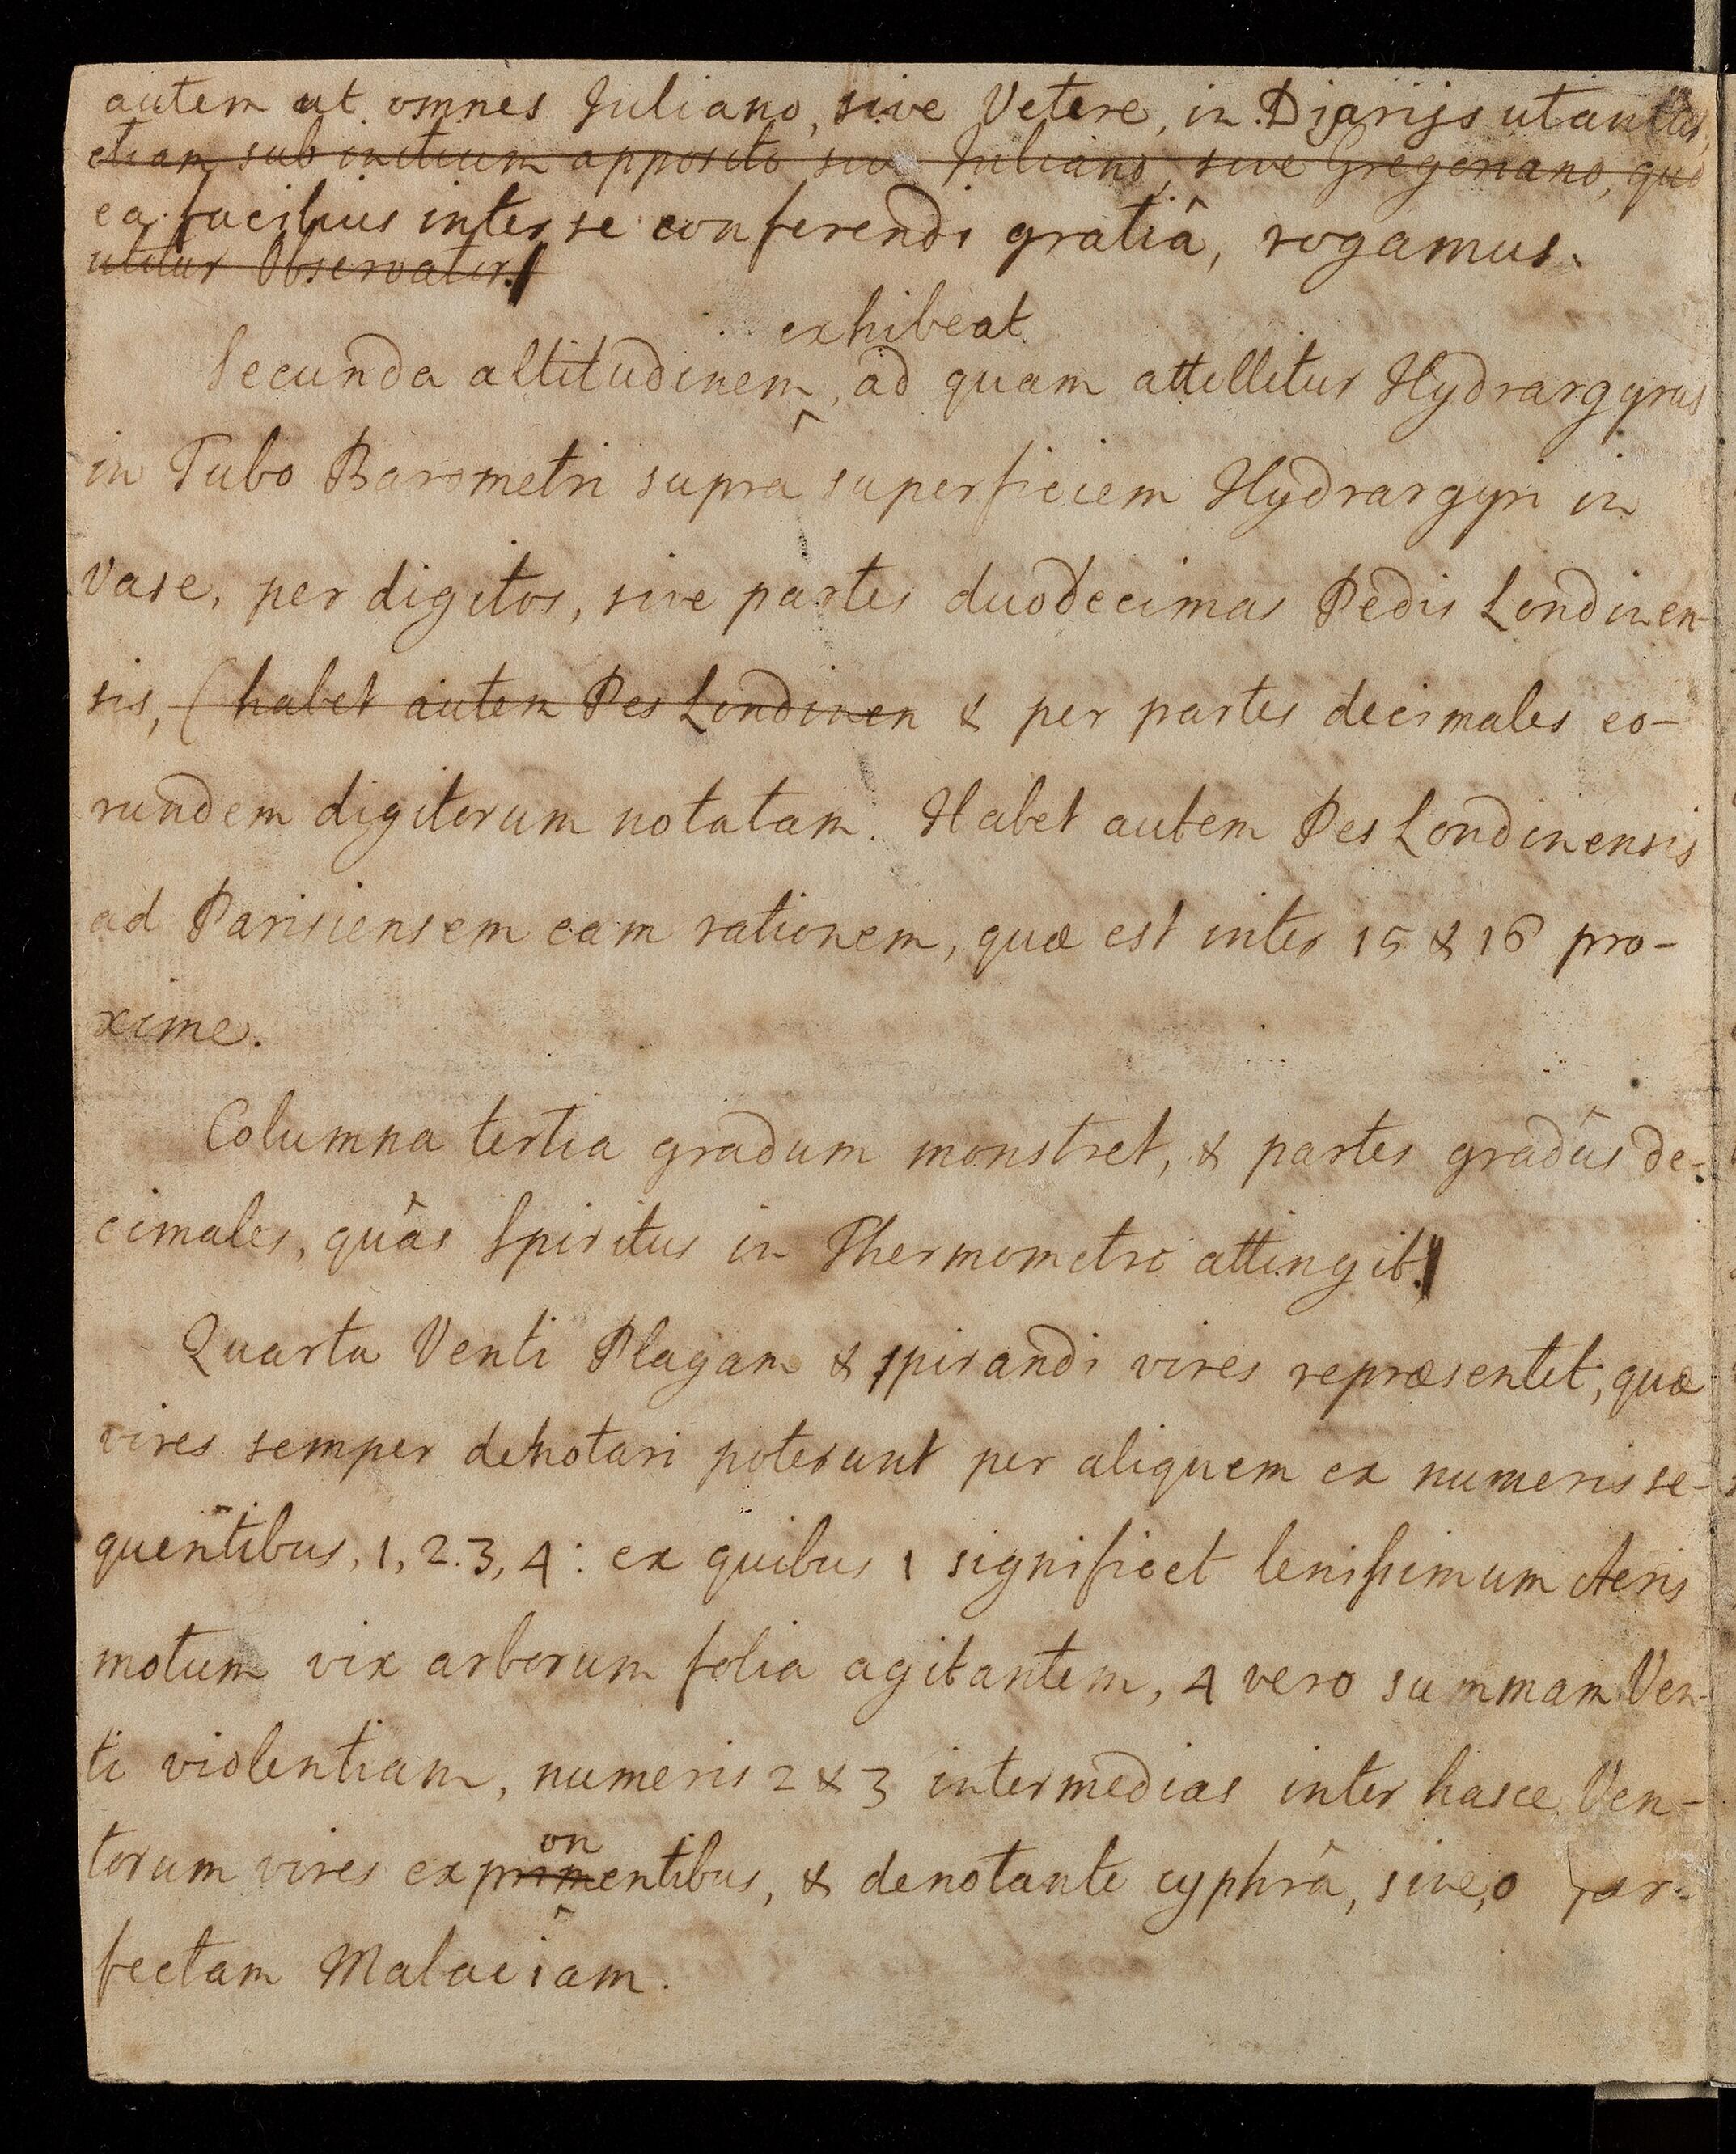 autem ut omnes Juliano, sive Vetere, in Diarijs utantur,
etiam sub initium apposito sive Juliano, sive Gregoriano, quo
ea facilius inter se conferendi gratiâ, rogamus.
utitur Observator.
exhibeat
Secunda altitudinem, ad quam attollitur Hydrargyrus
in Tubo Barometri supra superficiem Hydrargyri in
Vase, per digitos, sive partes duodecimas Pedis Londinen-
sis, (habet autem Pes Londinen & per partes decimales eo-
rundem digitorum notatam. Habet autem Pes Londinensis
ad Parisiensem eam rationem, quæ est inter 15 & 16 pro-
xime.
Columna tertia gradum monstret, & partes gradûs de-
cimales, quâs Spiritus in Thermometro attingit.
Quarta Venti Plagam & spirandi vires repræsentet; quæ
vires semper denotari poterunt per aliquem ex numeris se-
quentibus, 1, 2. 3, 4: ex quibus 1 significet lenissimum Aeris
motum vix arborum folia agitantem, 4 vero summam Ven-
ti violentiam, numeris 2 & 3 intermedias inter hasce Ven-
on
torum vires exprimentibus, & denotante cyphrâ, sive, 0 per-
fectam Malaciam.